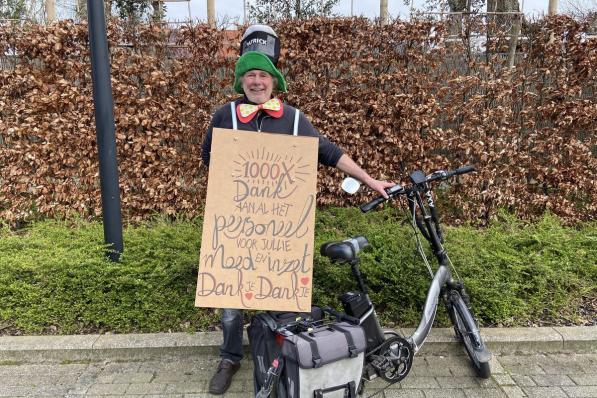 PATRICK
1000X
Dank
AAN AL HET
personeel
VOOR JULLIE
Moed EN inzet
Dank JE Dank JE